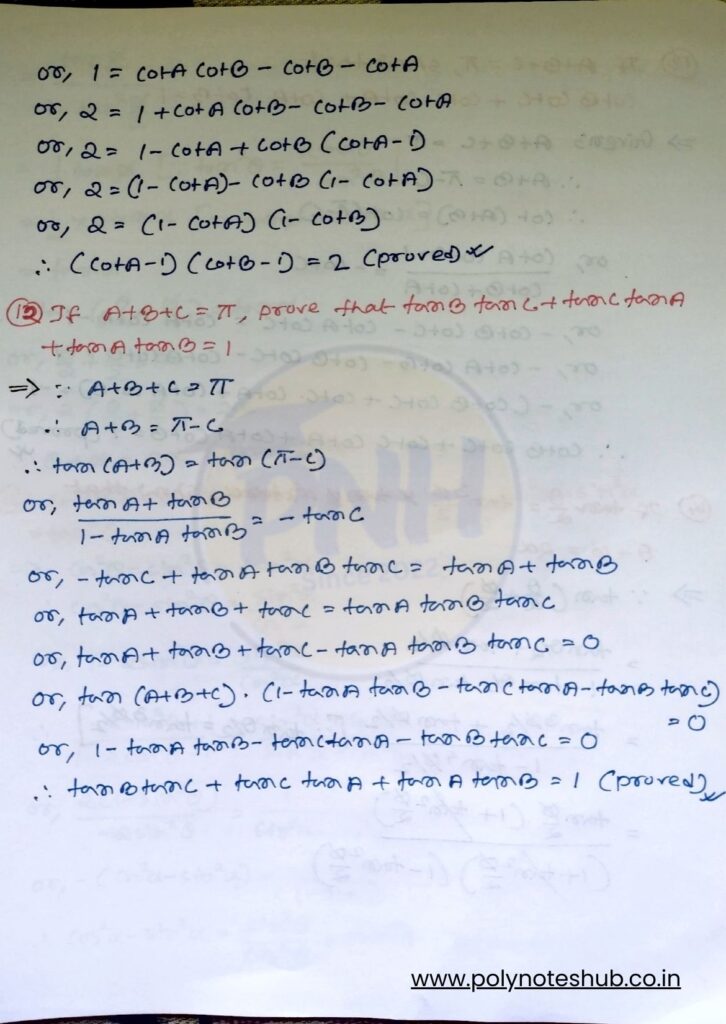 or, 1 = cotA cotB - cotB - cotA
or, 2 = 1 + cotA cotB - cotB - cotA
or, 2 = 1 - cotA + cotB (cotA-1)
or, 2 = (1 - cotA) - cotB (1 - cotA)
or, 2 = (1 - cotA) (1 - cotB)
∴ (cotA-1) (cotB-1) = 2 (proved)
⑫ If A+B+C = π, prove that tanB tanC + tanC tanA
+ tanA tanB = 1
⇒ ∵ A+B+C = π
∴ A+B = π-C
∴ tan (A+B) = tan (π-C)
or, (tanA + tanB)/(1 - tanA tanB) = - tanC
or, - tanC + tanA tanB tanC = tanA + tanB
or, tanA + tanB + tanC = tanA tanB tanC
or, tanA + tanB + tanC - tanA tanB tanC = 0
or, tan (A+B+C) . (1 - tanA tanB - tanC tanA - tanB tanC)
= 0
or, 1 - tanA tanB - tanC tanA - tanB tanC = 0
∴ tanB tanC + tanC tanA + tanA tanB = 1 (proved)
PNH
Since 2022
www.polynoteshub.co.in